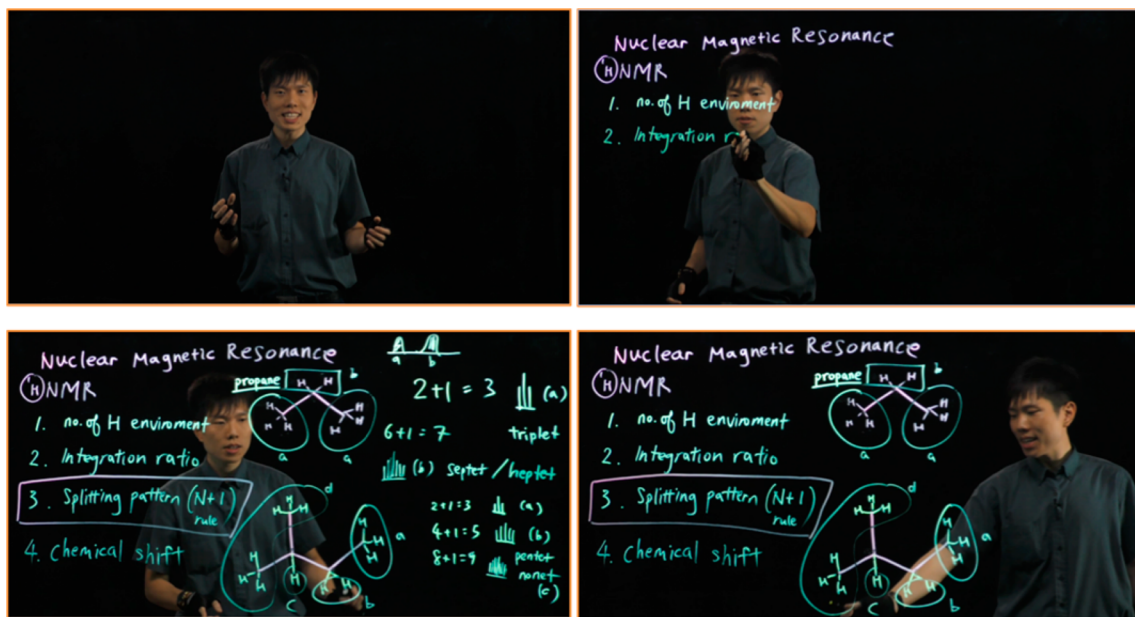 Nuclear Magnetic Resonance
¹H NMR
1. no. of H enviroment
2. Integration
Nuclear Magnetic Resonance
¹H NMR
1. no. of H enviroment
2. Integration ratio
3. Splitting pattern (N+1)
rule
4. Chemical shift
propane
H H
b
H H H
H H H
a
a
d
H H H
H H H
H
c
H H
b
H H H
a
a b
2+1 = 3 (a)
triplet
6+1 = 7
(b) septet / heptet
2+1=3 (a)
4+1=5 (b)
pentet
8+1=9
nonet
(c)
Nuclear Magnetic Resonance
¹H NMR
1. no. of H enviroment
2. Integration ratio
3. Splitting pattern (N+1)
rule
4. Chemical shift
propane
H H
b
H H H
H H H
a
a
d
H H H
H H H
H
c
H H
b
H H H
a